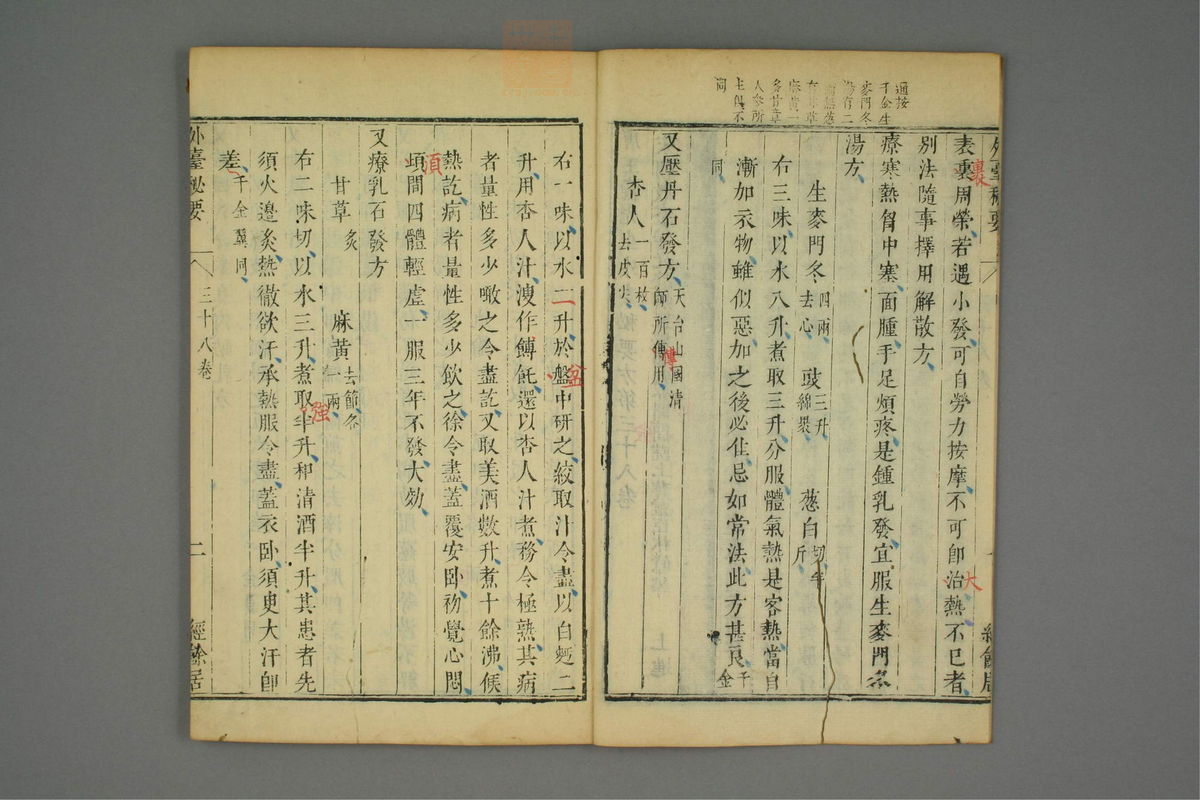 通按
千金生
麥門冬
湯有二
葱
草
麻黃一
多甘草
人參所
主俱不
同
外臺秘要
經餘居
表裏周榮若遇小發可自勞力按摩不可卽治熱不巳者
裹
大
別法隨事擇用解散方
療寒熱胷中塞面腫手足煩疼是鍾乳發宜服生麥門冬
湯方
生麥門冬四兩去心 豉三升綿裹 葱白切半斤
右三味以水八升煮取三升分服體氣熱是客熱當自
漸加衣物雖似惡加之後必佳忌如常法此方甚良千金
同
又壓丹石發方天台山國清師所傳用
杏人一百枚去皮尖
右一味以水二升於盤中研之絞取汁令盡以白麪二
二
盆
升用杏人汁溲作餺飥還以杏人汁煮務令極熟其病
者量性多少噉之令盡訖又取美酒數升煮十餘沸候
熱訖病者量性多少飲之徐令盡蓋覆安卧初覺心悶
頃間四體輕虛一服三年不發大効
須
又療乳石發方
甘草炙 麻黃去節各一兩
右二味切以水三升煮取半升和清酒半升其患者先
強
須火邊炙熱徹欲汗承熱服令盡蓋衣卧須臾大汗卽
差千金翼同
外臺秘要 三十八卷 二 經餘居